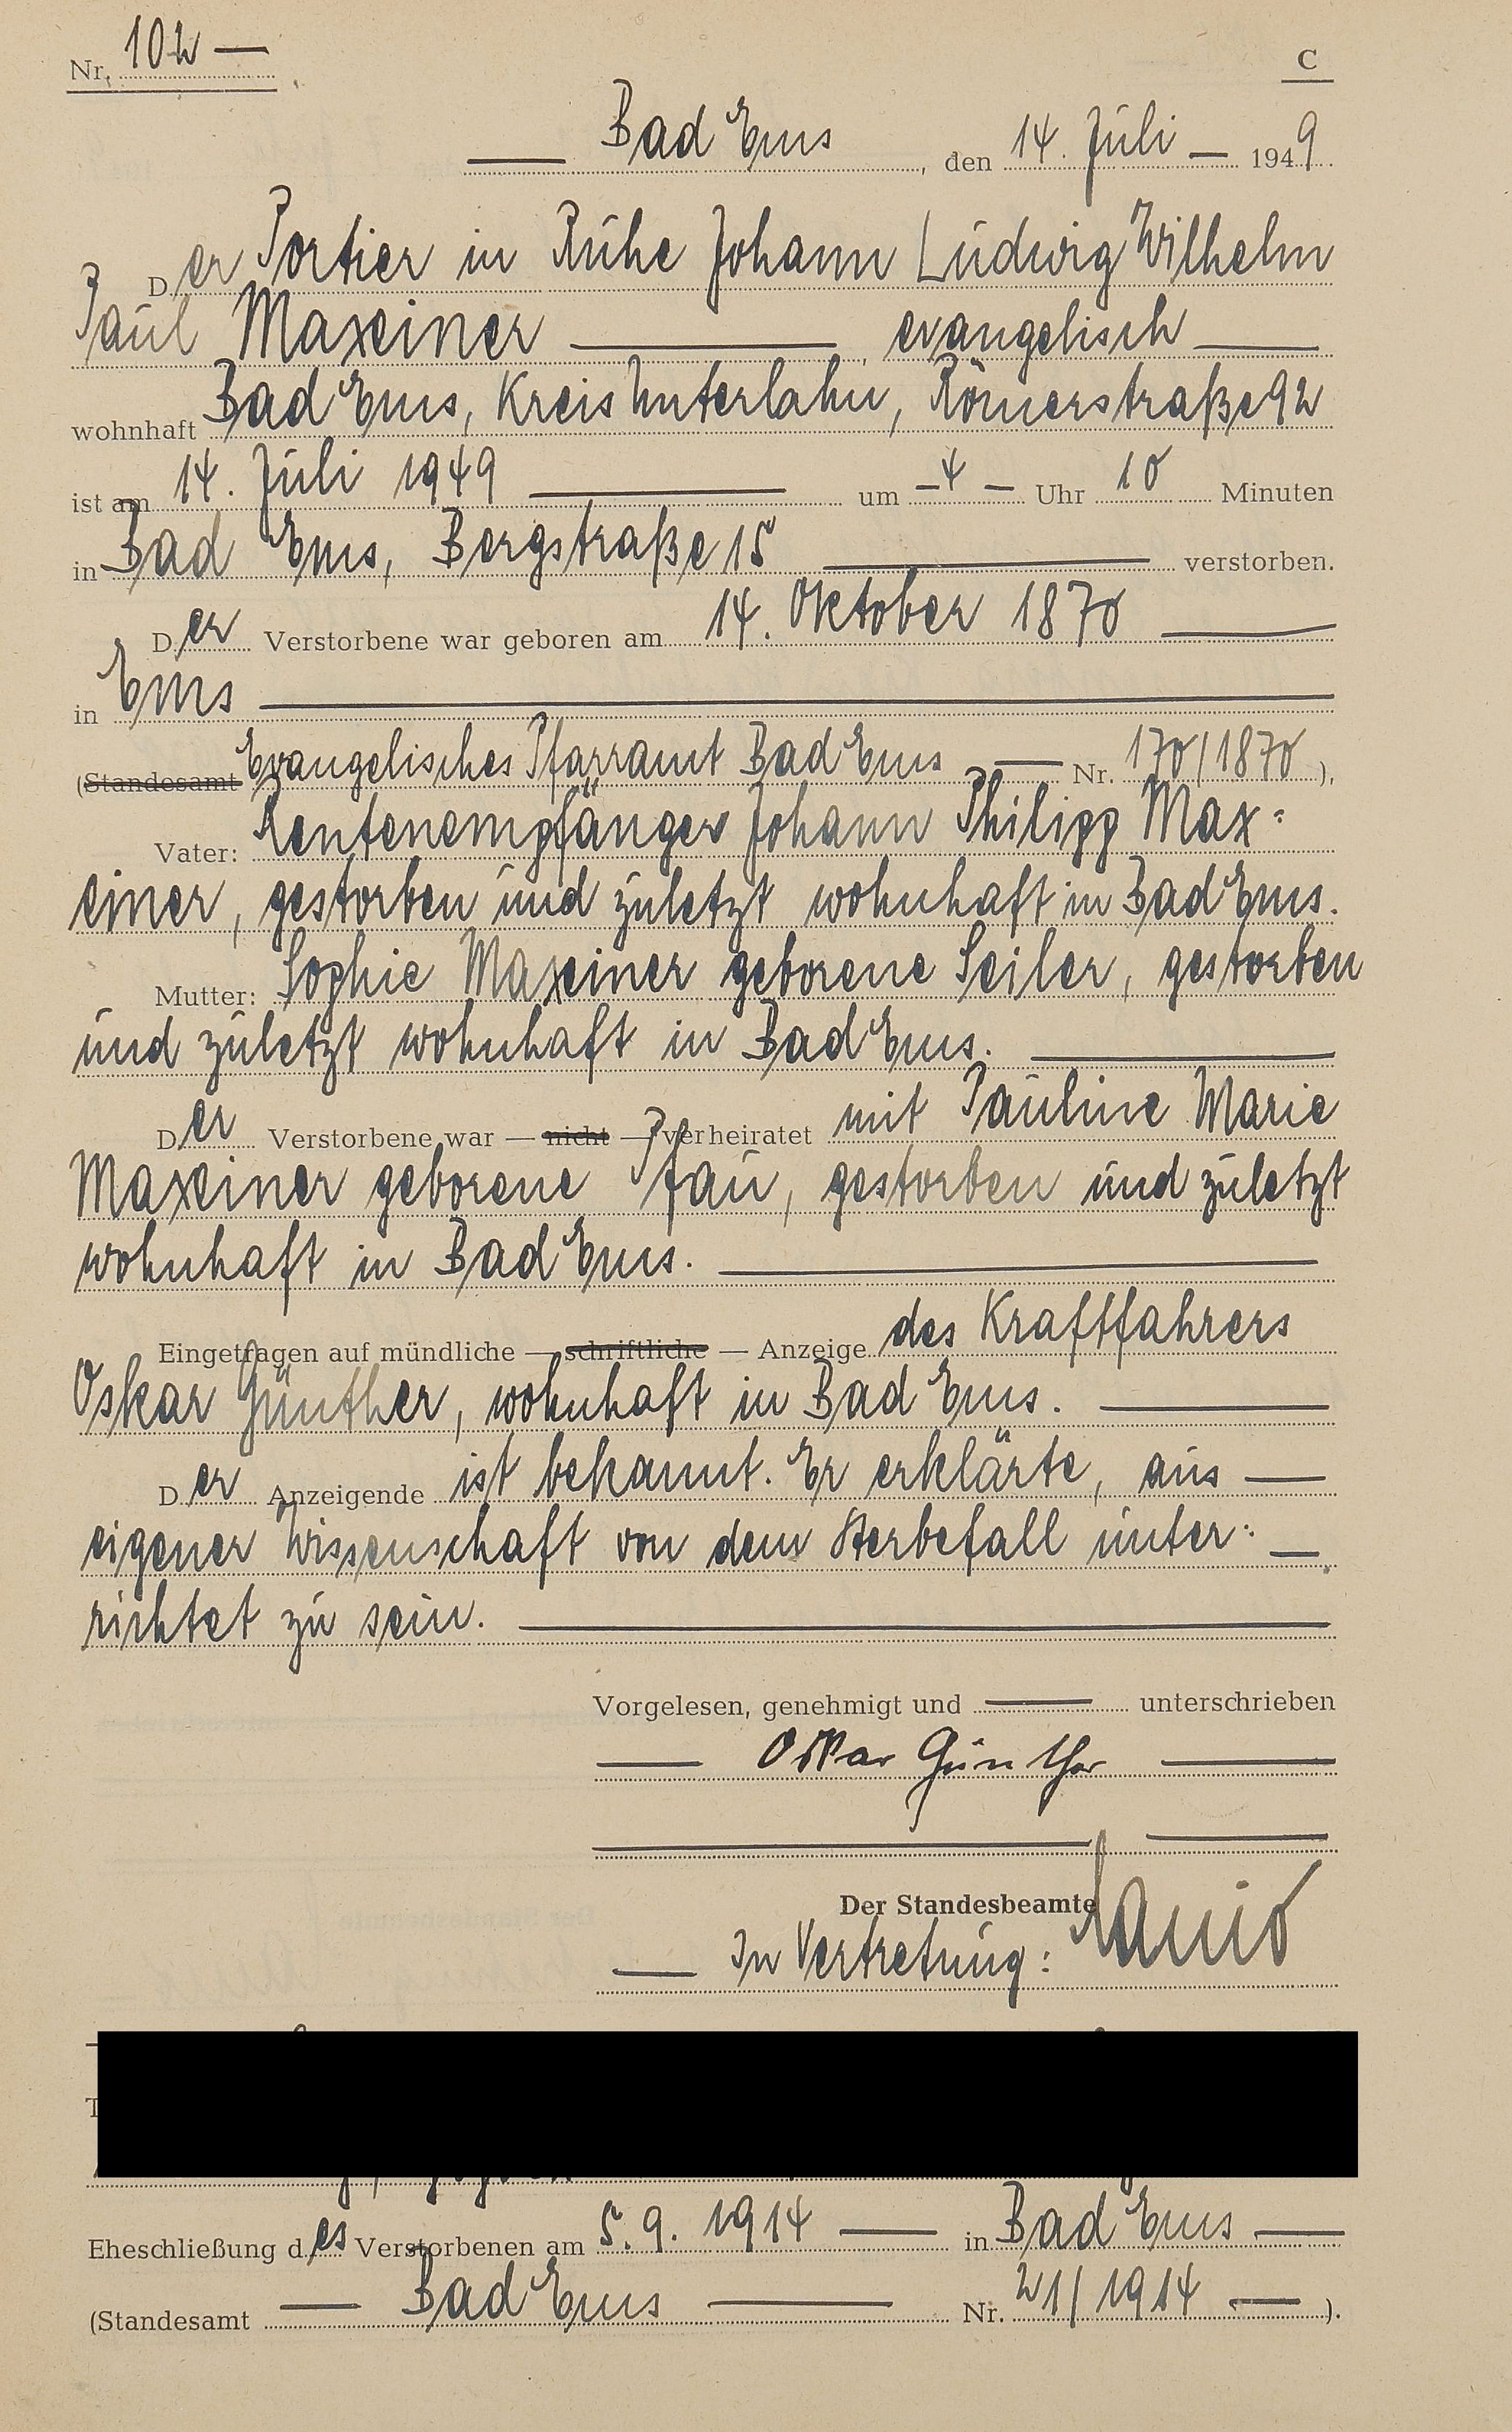 Nr. 102 —
C
— Bad Ems, den 14. Juli — 1949.
Der Portier in Ruhe Johann Ludwig Wilhelm
Paul Maxeiner — , evangelisch —
wohnhaft Bad Ems, Kreis Unterlahn, Römerstraße 92
ist am 14. Juli 1949 — um — 4 — Uhr 10 Minuten
in Bad Ems, Bergstraße 15 — verstorben.
Der Verstorbene war geboren am 14. Oktober 1870 —
in Ems —
(Standesamt Evangelisches Pfarramt Bad Ems — Nr. 170/1870 ),
Vater: Rentenempfänger Johann Philipp Max=
einer, gestorben und zuletzt wohnhaft in Bad Ems.
Mutter: Sophie Maxeiner geborene Seiler, gestorben
und zuletzt wohnhaft in Bad Ems. —
Der Verstorbene war — nicht — verheiratet mit Pauline Marie
Maxeiner geborene Pfau, gestorben und zuletzt
wohnhaft in Bad Ems. —
Eingetragen auf mündliche — schriftliche — Anzeige des Kraftfahrers
Oskar Günther, wohnhaft in Bad Ems. —
Der Anzeigende ist bekannt. Er erklärte, aus —
eigener Wissenschaft von dem Sterbefall unter= —
richtet zu sein. —
Vorgelesen, genehmigt und — unterschrieben
— Oskar Günther —
Der Standesbeamte
— In Vertretung:
Eheschließung des Verstorbenen am 5. 9. 1914 — in Bad Ems —
(Standesamt — Bad Ems — Nr. 21/1914 — ).